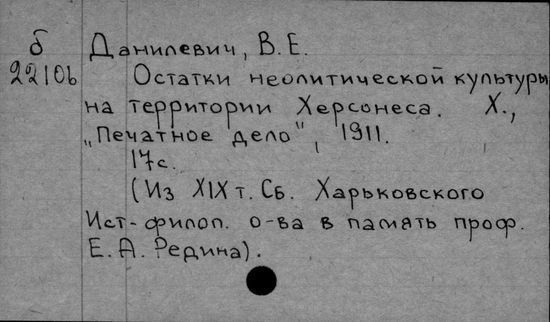 б Данилевич, В.Е.
22106 Остатки неолитической культуры
на территории Херсонеса. Х.,
„Печатное дело", 1911.
17с.
(Из XIX т. Сб. Харьковского
Ист-филол. о-ва в память проф.
Е.А. Редина).